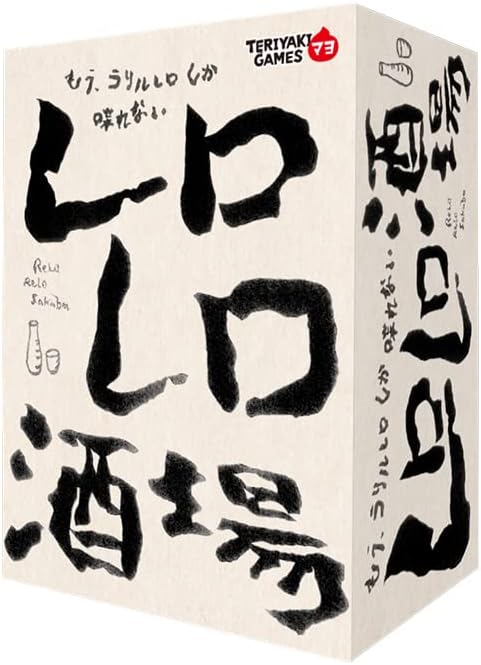 TERIYAKI
GAMES
マヨ
もう、ラリルレロしか
喋れない
レロ
レロ
酒場
ReLo
ReLo
Sakaba
レロレロ酒場
もう、ラリルレロしか 喋れない
ReLo
ReLo
Sakaba